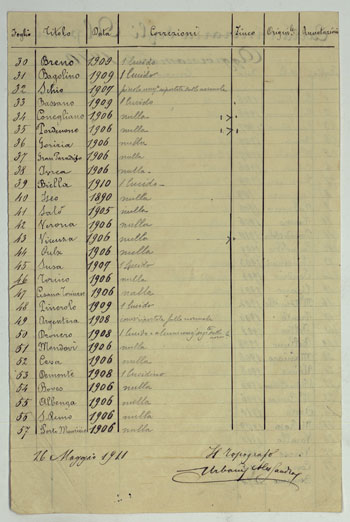 Foglio Titolo Data Correzioni Zinco Origin.le Annotazioni
30 Breno 1909 1 lucido
31 Bagolino 1909 1 lucido
32 Schio 1907
33 Bassano 1909 1 lucido
34 Conegliano 1906 nulla
35 Pordenone 1906 nulla
36 Gorizia 1906 nulla
37 Gran Paradiso 1906 nulla
38 Ivrea 1906 nulla
39 Biella 1910 1 lucido
40 Iseo 1890 nulla
41 Salò 1905 nulla
42 Verona 1906 nulla
43 Vicenza 1906 nulla
44 1906 nulla
45 Susa 1907 1 lucido
46 Torino 1906 nulla
47 1906 nulla
48 Pinerolo 1909 1 lucido
49 Argentera 1908
50 Dronero 1908 1 lucido
51 Mondovì 1906 nulla
52 1906 nulla
53 Demonte 1908 1 lucidino
54 Boves 1906 nulla
55 Albenga 1906 nulla
56 S. Remo 1906 nulla
57 Porto Maurizio 1906 nulla
26 Maggio 1911 Il Topografo